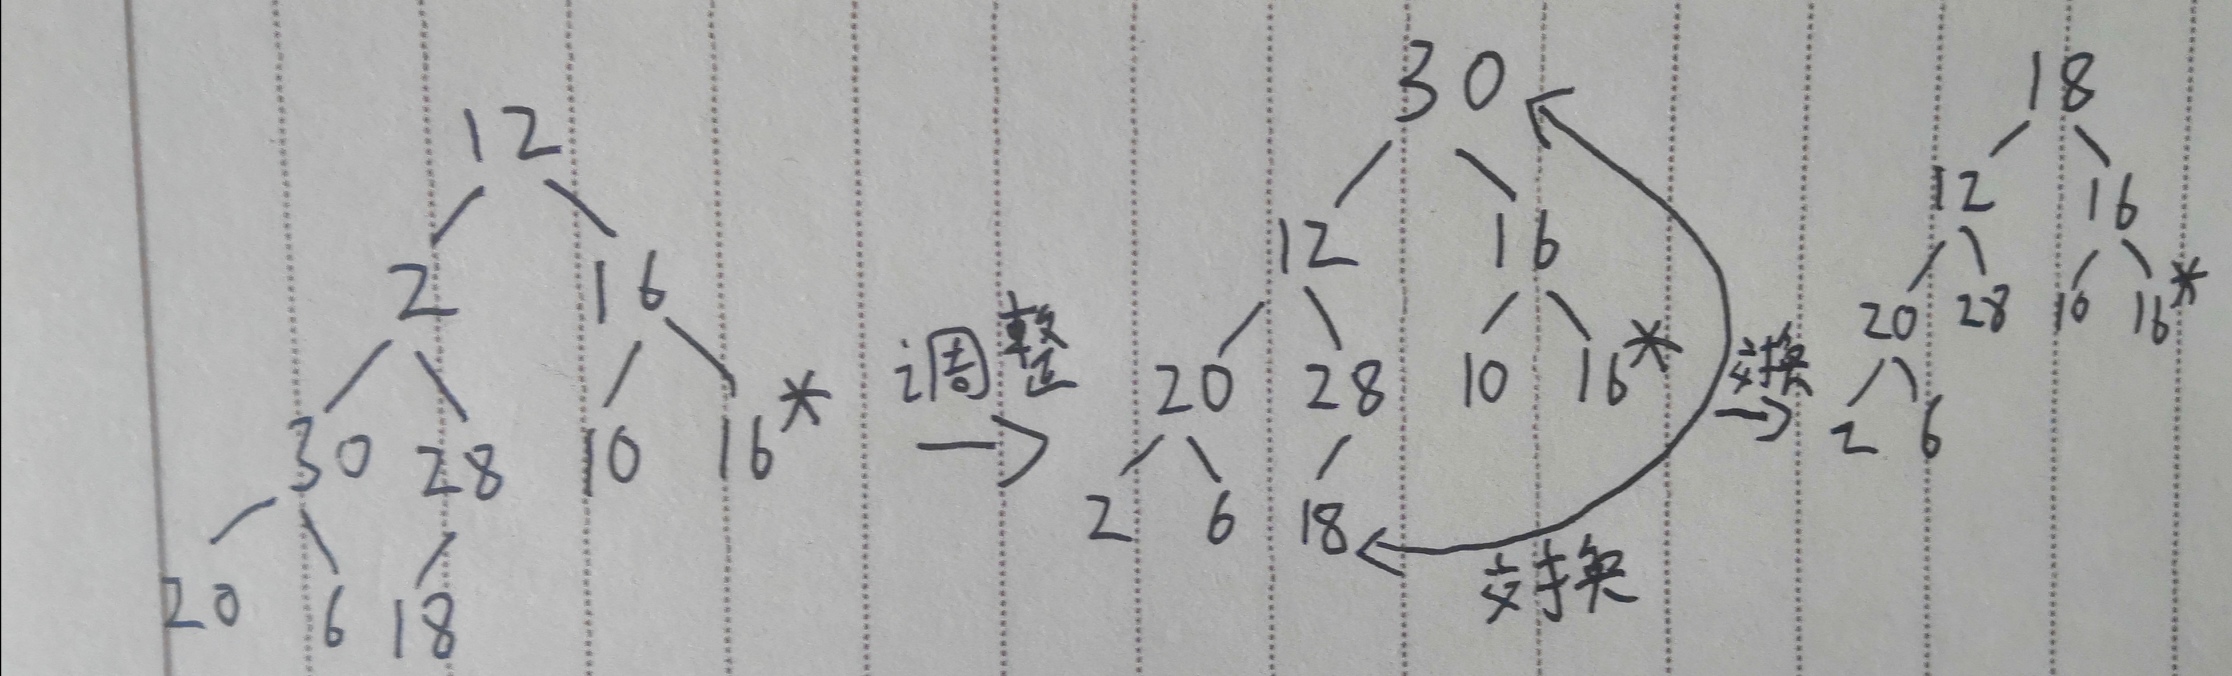 12
2 16
30 28 10 16*
20 6 18
调整
30
12 16
20 28 10 16*
2 6 18
交换
交换
18
12 16
20 28 10 16*
2 6